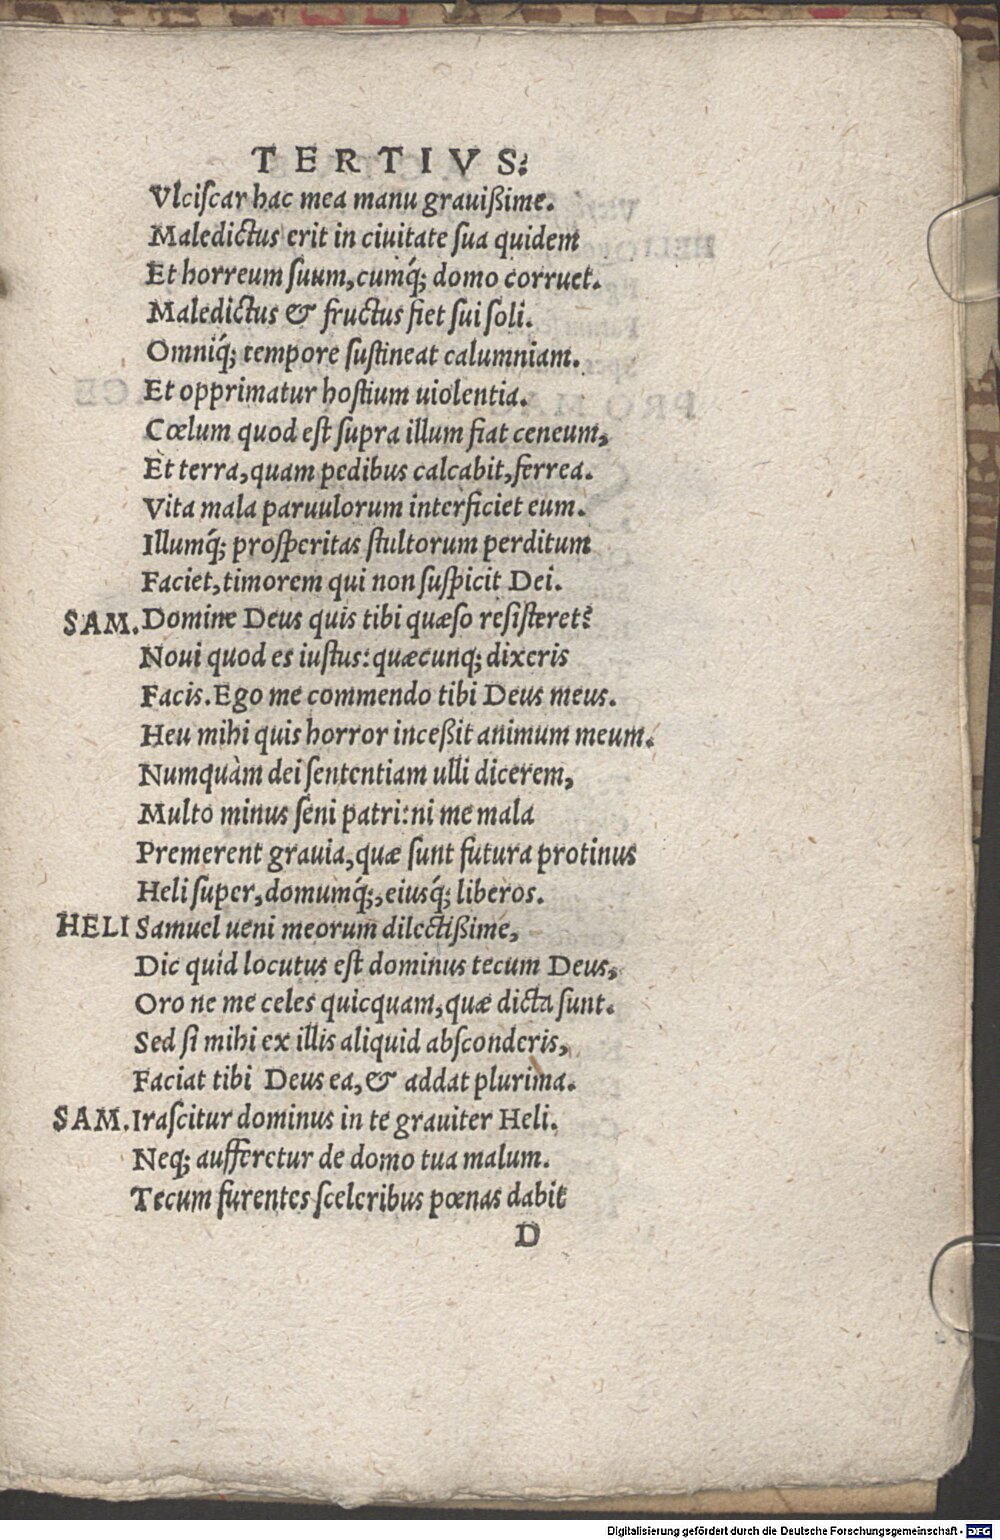 TERTIVS.
Vlciſcar hac mea manu grauißime.
Maledictus erit in ciuitate ſua quidem
Et horreum ſuum, cumq́; domo corruet.
Maledictus & fructus fiet ſui ſoli.
Omniq́; tempore ſuſtineat calumniam.
Et opprimatur hoſtium uiolentia.
Cœlum quod eſt ſupra illum fiat ceneum,
Et terra, quam pedibus calcabit, ferrea.
Vita mala paruulorum interficiet eum.
Illumq́; proſperitas ſtultorum perditum
Faciet, timorem qui non ſuſpicit Dei.
SAM. Domine Deus quis tibi quæſo reſiſteret?
Noui quod es iuſtus: quæcunq; dixeris
Facis. Ego me commendo tibi Deus meus.
Heu mihi quis horror inceßit animum meum.
Numquàm dei ſententiam ulli dicerem,
Multo minus ſeni patri: ni me mala
Premerent grauia, quæ ſunt futura protinus
Heli ſuper, domumq́;, eiusq́; liberos.
HELI Samuel ueni meorum dilectißime,
Dic quid locutus eſt dominus tecum Deus,
Oro ne me celes quicquam, quæ dicta ſunt.
Sed ſi mihi ex illis aliquid abſconderis,
Faciat tibi Deus ea, & addat plurima.
SAM. Iraſcitur dominus in te grauiter Heli.
Neq; aufferetur de domo tua malum.
Tecum furentes ſceleribus pœnas dabit
D
Digitalisierung gefördert durch die Deutsche Forschungsgemeinschaft - DFG